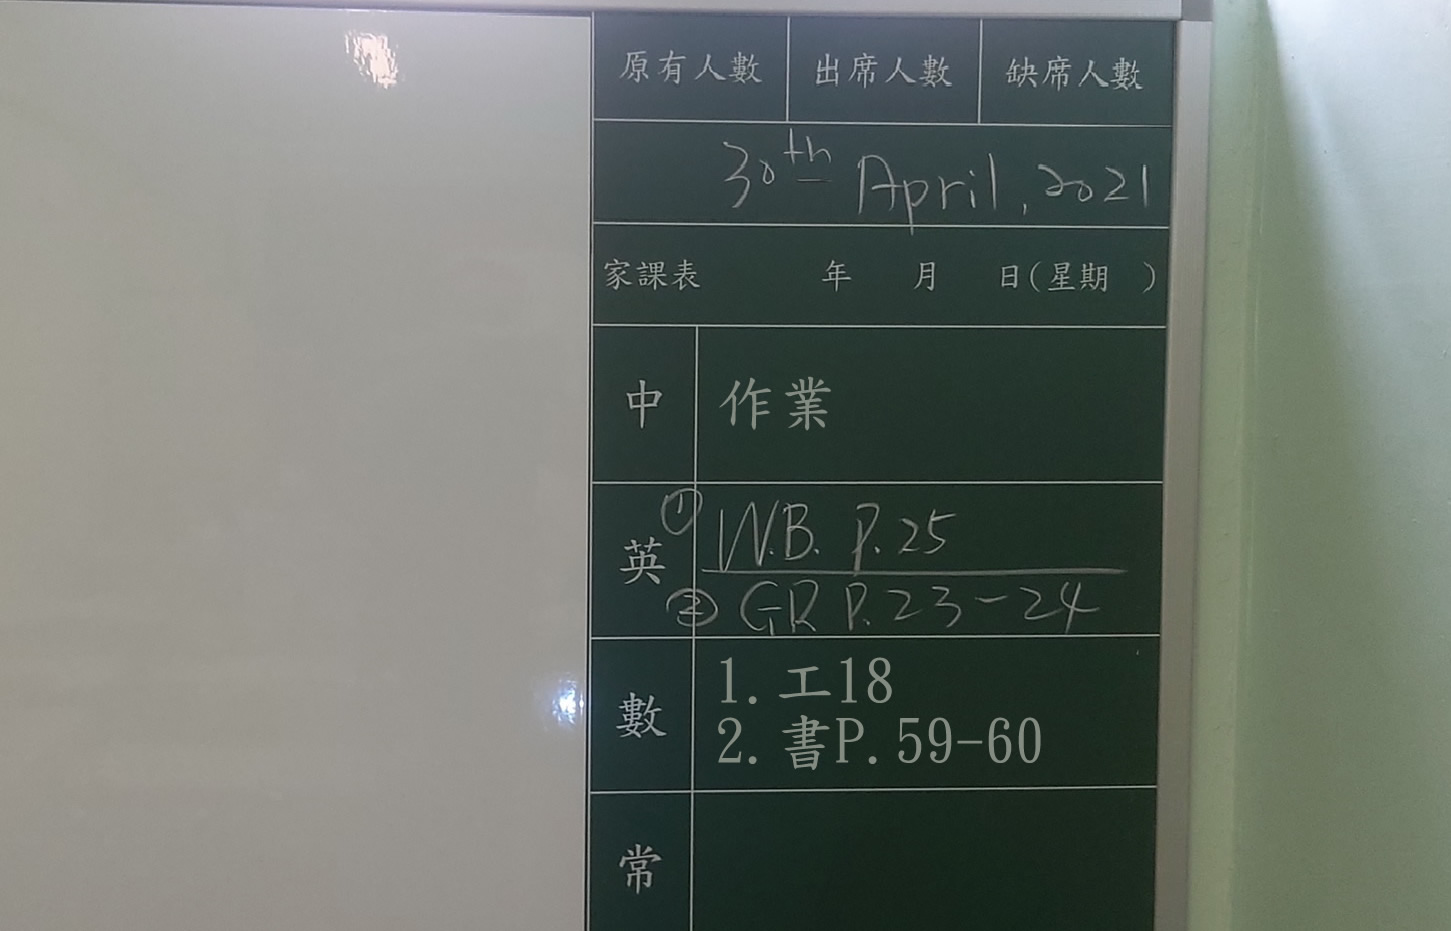 原有人數 出席人數 缺席人數
30th April, 2021
家課表 年 月 日(星期 )
中 作業
英 ① W.B. P.25
② GR P.23-24
數 1. 工18
2. 書P.59-60
常